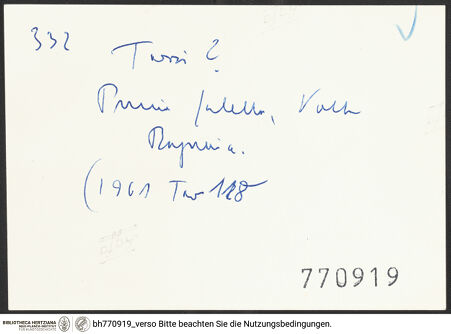 332
Tassi?
Prima saletta, Volta
Rapina.
(1961 Tav 128
770919
BIBLIOTHECA HERTZIANA
MAX-PLANCK-INSTITUT
FÜR KUNSTGESCHICHTE
bh770919_verso Bitte beachten Sie die Nutzungsbedingungen.